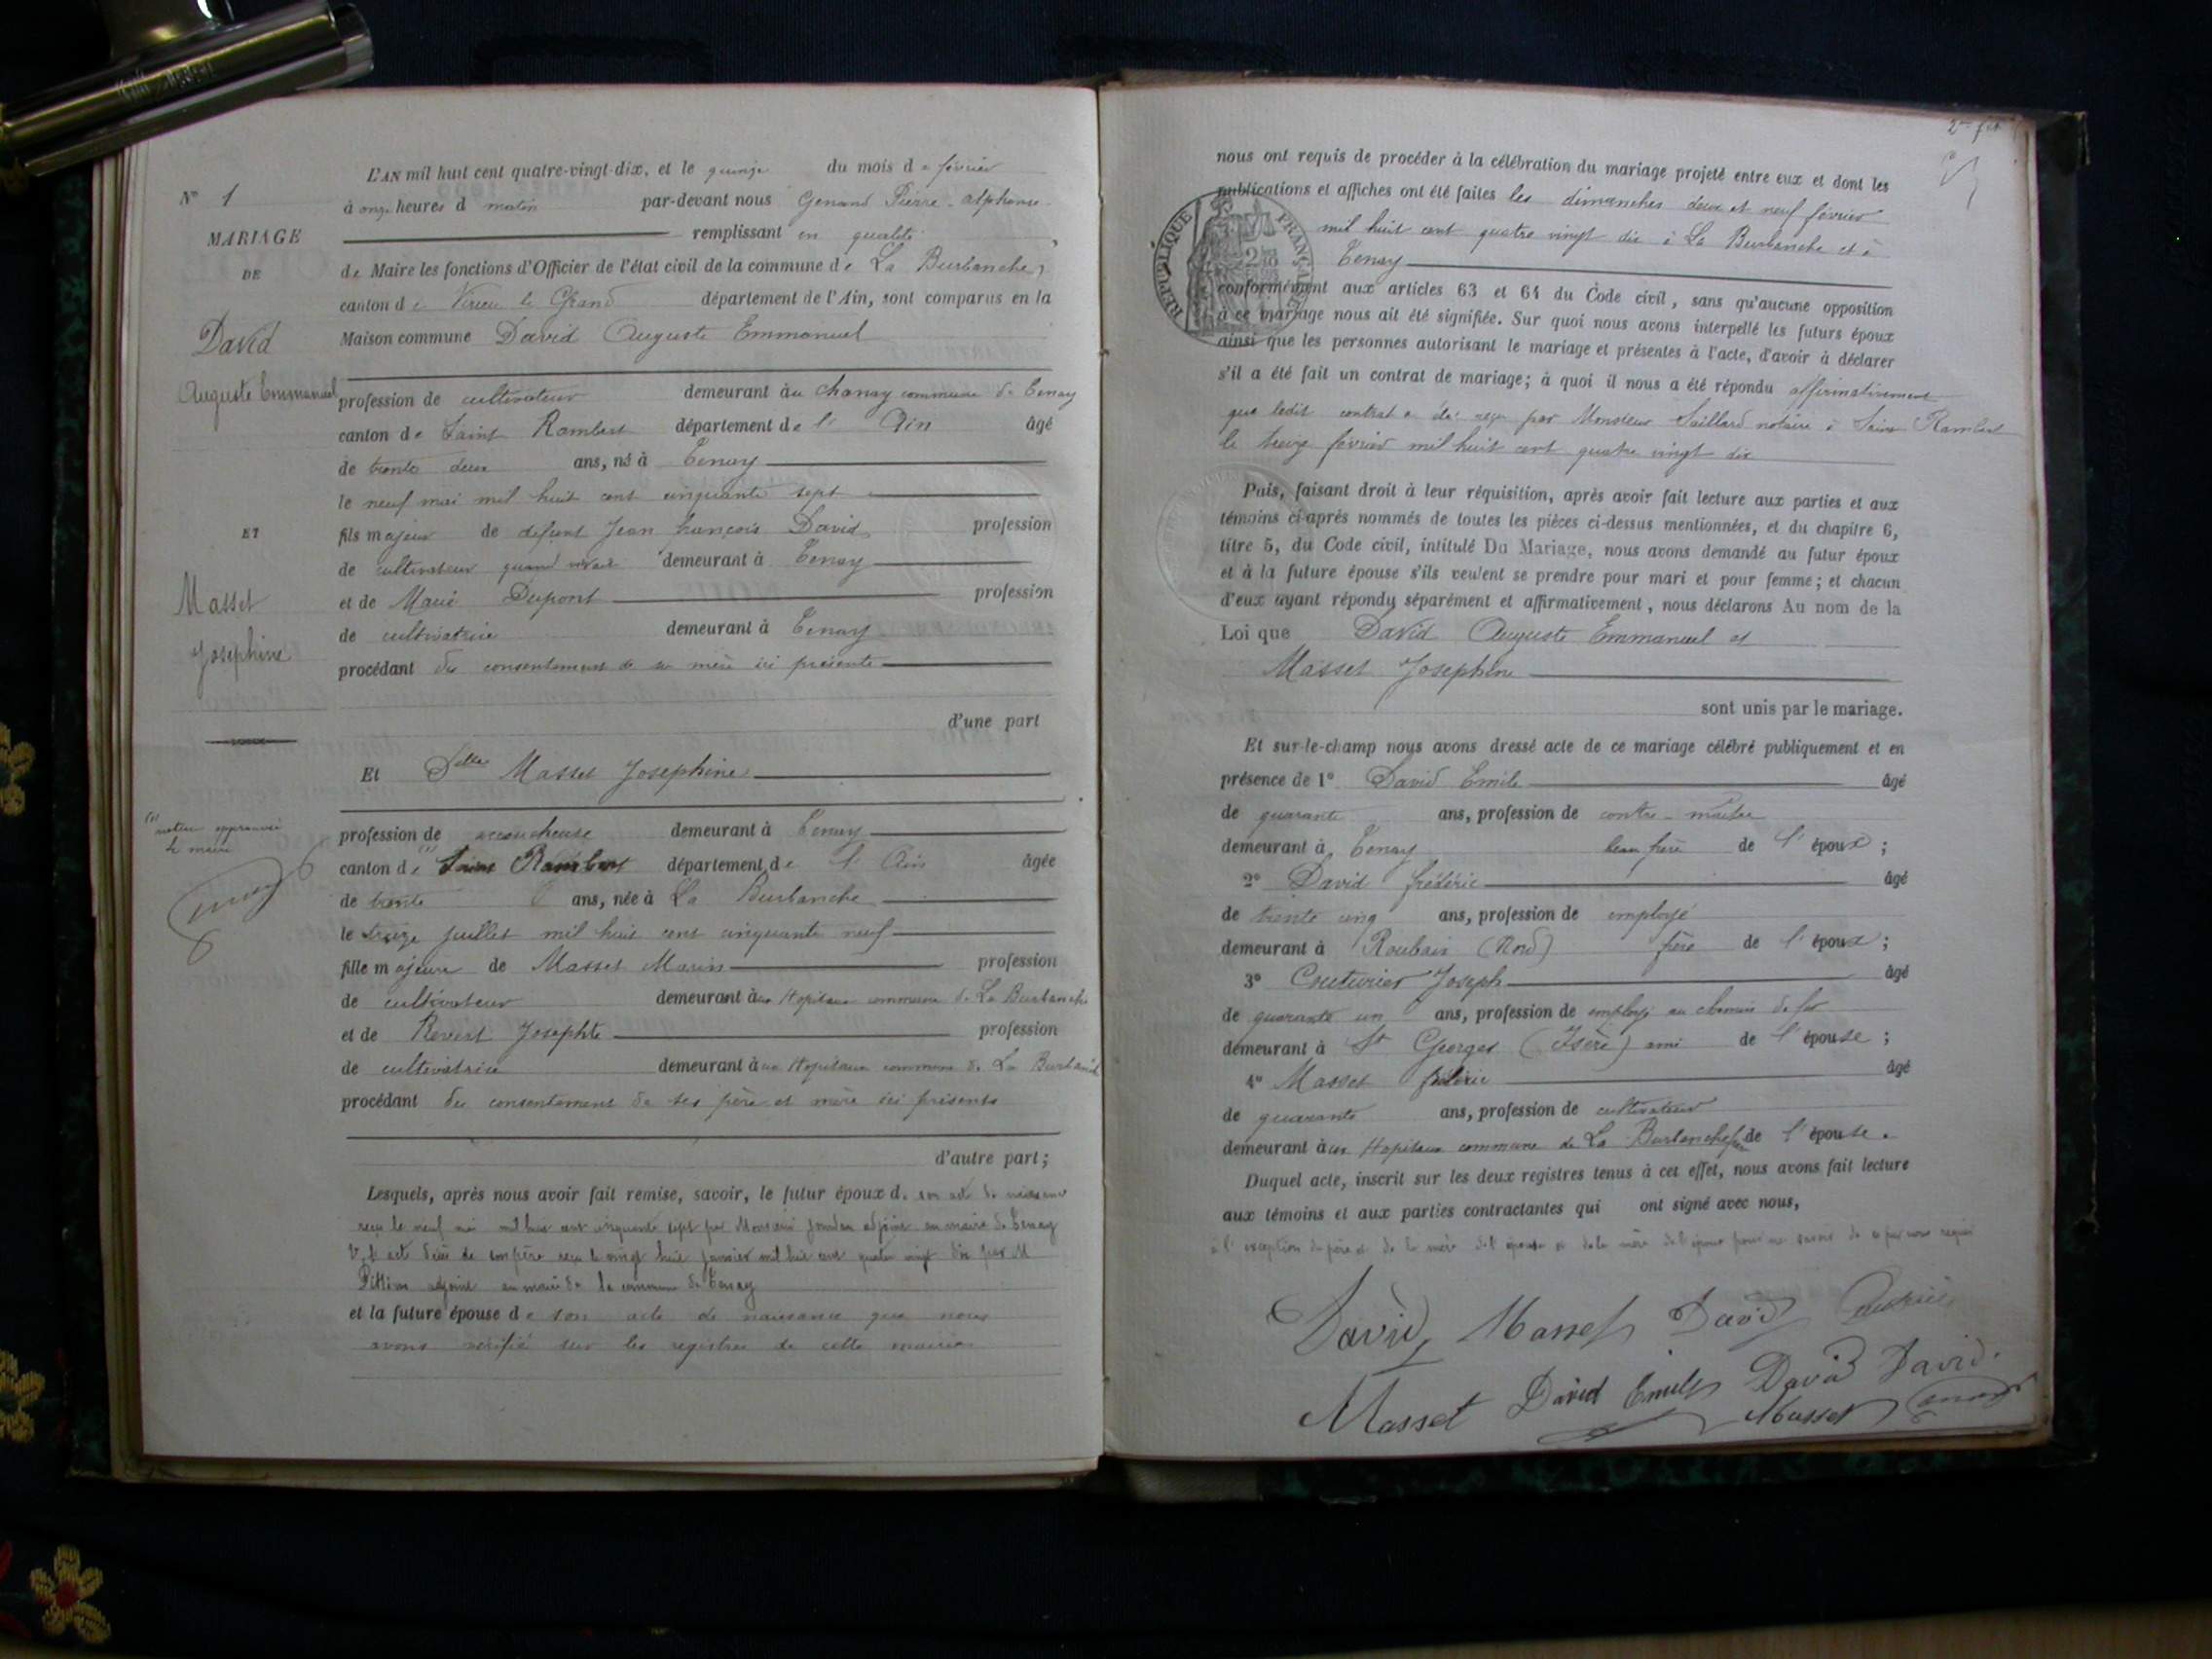 L'AN mil huit cent quatre-vingt-dix, et le quinze du mois de février
à onze heures d matin par-devant nous Genand Pierre-alphonse
remplissant en qualité
de Maire les fonctions d'Officier de l'état civil de la commune de La Burbanche,
canton de Virieu le Grand département de l'Ain, sont comparus en la
Maison commune David Auguste Emmanuel
profession de cultivateur demeurant au Chanay commune de Tenay
canton de Saint Rambert département de l' Ain âgé
de trente deux ans, né à Tenay
le neuf mai mil huit cent cinquante sept
fils majeur de defunt Jean françois David profession
de cultivateur quand vivait demeurant à Tenay
et de Marie Dupont profession
de cultivatrice demeurant à Tenay
procédant du consentement de sa mère ici présente
d'une part
Et Delle Masset Josephine
profession de accoucheuse demeurant à Tenay
canton de (1) Saint Rambert département de l' Ain âgée
de trente ans, née à La Burbanche
le treize juillet mil huit cent cinquante neuf
fille majeure de Masset Marin profession
de cultivateur demeurant aux Hopitaux commune de La Burbanche
et de Revert Josephte profession
de cultivatrice demeurant aux Hopitaux commune de La Burbanche
procédant du consentement de ses père et mère ici présents
d'autre part;
Lesquels, après nous avoir fait remise, savoir, le futur époux de son acte de naissance
reçu le neuf mai mil huit cent cinquante sept par Monsieur adjoint au maire de Tenay
acte décès de son père reçu le vingt huit janvier mil huit cent quatre vingt dix par M
adjoint au maire de la commune de Tenay
et la future épouse de son acte de naissance que nous
avons vérifié sur les registres de cette mairie
N° 1
MARIAGE
DE
David
Auguste Emmanuel
ET
Masset
Josephine
(1)
approuvé
Le maire
2me ft
nous ont requis de procéder à la célébration du mariage projeté entre eux et dont les
publications et affiches ont été faites les dimanches deux et neuf février
mil huit cent quatre vingt dix à La Burbanche et à
Tenay
RÉPUBLIQUE FRANÇAISE
conformément aux articles 63 et 64 du Code civil, sans qu'aucune opposition
à ce mariage nous ait été signifiée. Sur quoi nous avons interpellé les futurs époux
ainsi que les personnes autorisant le mariage et présentes à l'acte, d'avoir à déclarer
s'il a été fait un contrat de mariage; à quoi il nous a été répondu affirmativement
que ledit contrat a été reçu par Monsieur Saillard notaire à Saint Rambert
le treize février mil huit cent quatre vingt dix
Puis, faisant droit à leur réquisition, après avoir fait lecture aux parties et aux
témoins ci-après nommés de toutes les pièces ci-dessus mentionnées, et du chapitre 6,
titre 5, du Code civil, intitulé Du Mariage, nous avons demandé au futur époux
et à la future épouse s'ils veulent se prendre pour mari et pour femme; et chacun
d'eux ayant répondu séparément et affirmativement, nous déclarons Au nom de la
Loi que David Auguste Emmanuel et
Masset Josephine
sont unis par le mariage.
Et sur-le-champ nous avons dressé acte de ce mariage célébré publiquement et en
présence de 1° David Emile âgé
de quarante ans, profession de contre-maître
demeurant à Tenay beau frère de l' époux;
2° David frédéric âgé
de trente cinq ans, profession de employé
demeurant à Roubaix (Nord) frère de l' époux;
3° Couturier Joseph âgé
de quarante un ans, profession de employé au chemin de fer
demeurant à St Georges (Isère) ami de l' épouse;
4° Masset frédéric âgé
de quarante ans, profession de cultivateur
demeurant aux Hopitaux commune de La Burbanche de l' épouse.
Duquel acte, inscrit sur les deux registres tenus à cet effet, nous avons fait lecture
aux témoins et aux parties contractantes qui ont signé avec nous,
à l'exception du père et de la mère de l'épouse et de la mère de l'époux pour ne savoir de ce par nous requis
David Masset David
Masset David Emile David David
Masset